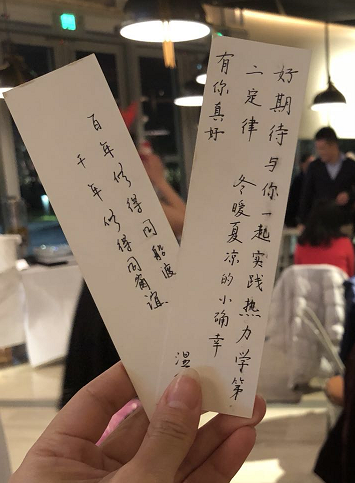 好期待与你一起实践热力学第
二定律 冬暖夏凉的小确幸
有你真好
温
百年修得同船渡
千年修得同窗谊